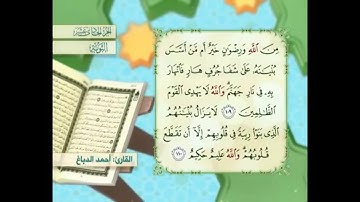 الجزء الحادي عشر
التوبة
مِنَ اللَّهِ وَرِضْوَانٍ خَيْرٌ أَم مَّنْ أَسَّسَ
بُنْيَـٰنَهُ عَلَىٰ شَفَا جُرُفٍ هَارٍ فَٱنْهَارَ
بِهِۦ فِى نَارِ جَهَنَّمَ وَٱللَّهُ لَا يَهْدِى ٱلْقَوْمَ
ٱلظَّـٰلِمِينَ ١٠٩ لَا يَزَالُ بُنْيَـٰنُهُمُ
ٱلَّذِى بَنَوْا رِيبَةً فِى قُلُوبِهِمْ إِلَّآ أَن تَقَطَّعَ
قُلُوبُهُمْ وَٱللَّهُ عَلِيمٌ حَكِيمٌ ١١٠
القارئ: أحمد الدباغ